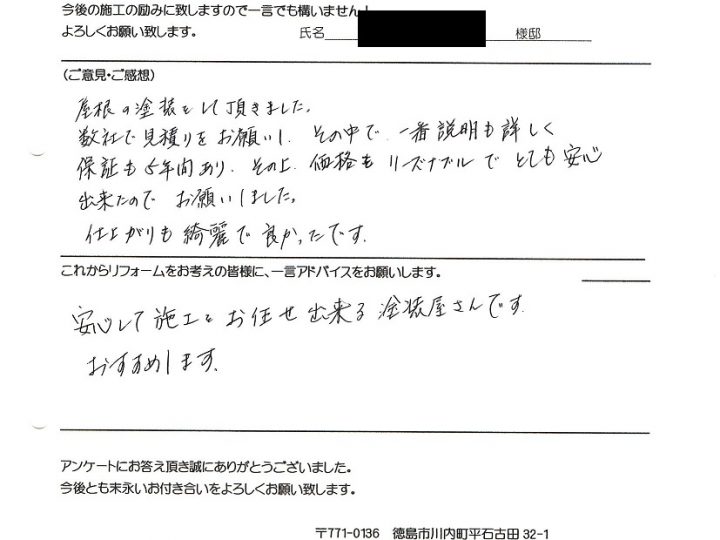 今後の施工の励みに致しますので一言でも構いません！
よろしくお願い致します。 氏名 様邸
(ご意見・ご感想)
屋根の塗装をして頂きました。
数社で見積りをお願いし、その中で一番説明も詳しく
保証も5年間あり、その上、価格もリーズナブルでとても安心
出来たのでお願いしました。
仕上がりも綺麗で良かったです。
これからリフォームをお考えの皆様に、一言アドバイスをお願いします。
安心して施工をお任せ出来る塗装屋さんです。
おすすめします。
アンケートにお答え頂き誠にありがとうございました。
今後とも末永いお付き合いをよろしくお願い致します。
〒771-0136 徳島市川内町平石古田 32-1